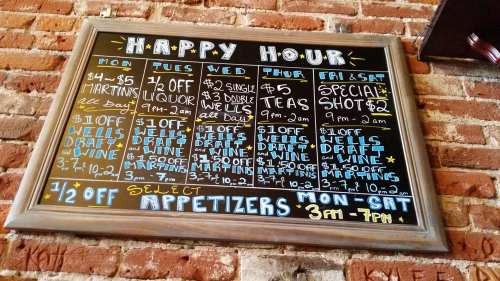 HAPPY HOUR
MON
$4 ~ $5
MARTINI'S
all Day
$1 OFF
WELLS
DRAFT
and WINE
3-7 pm & 10-2
TUES
1/2 OFF
LIQUOR
9pm - 2am
$1 OFF
WELLS
DRAFT
and WINE
$1.50 OFF
MARTINIS
3-7 pm & 10-2
WED
$2 SINGLE
$3 DOUBLE
WELLS
all Day
$1 OFF
WELLS
DRAFT
and WINE
$1.50 OFF
MARTINIS
3-7 pm & 10-2
THUR
$5
TEAS
9pm - 2am
$1 OFF
WELLS
DRAFT
and WINE
$1.50 OFF
MARTINIS
3-7 pm & 10-2
FRI & SAT
SPECIAL
SHOT $2
9pm - 2am
$1 OFF
WELLS
DRAFT
and WINE
$1.50 OFF
MARTINIS
3-7 pm & 10pm-2am
1/2 OFF SELECT APPETIZERS MON - SAT
3PM - 7PM